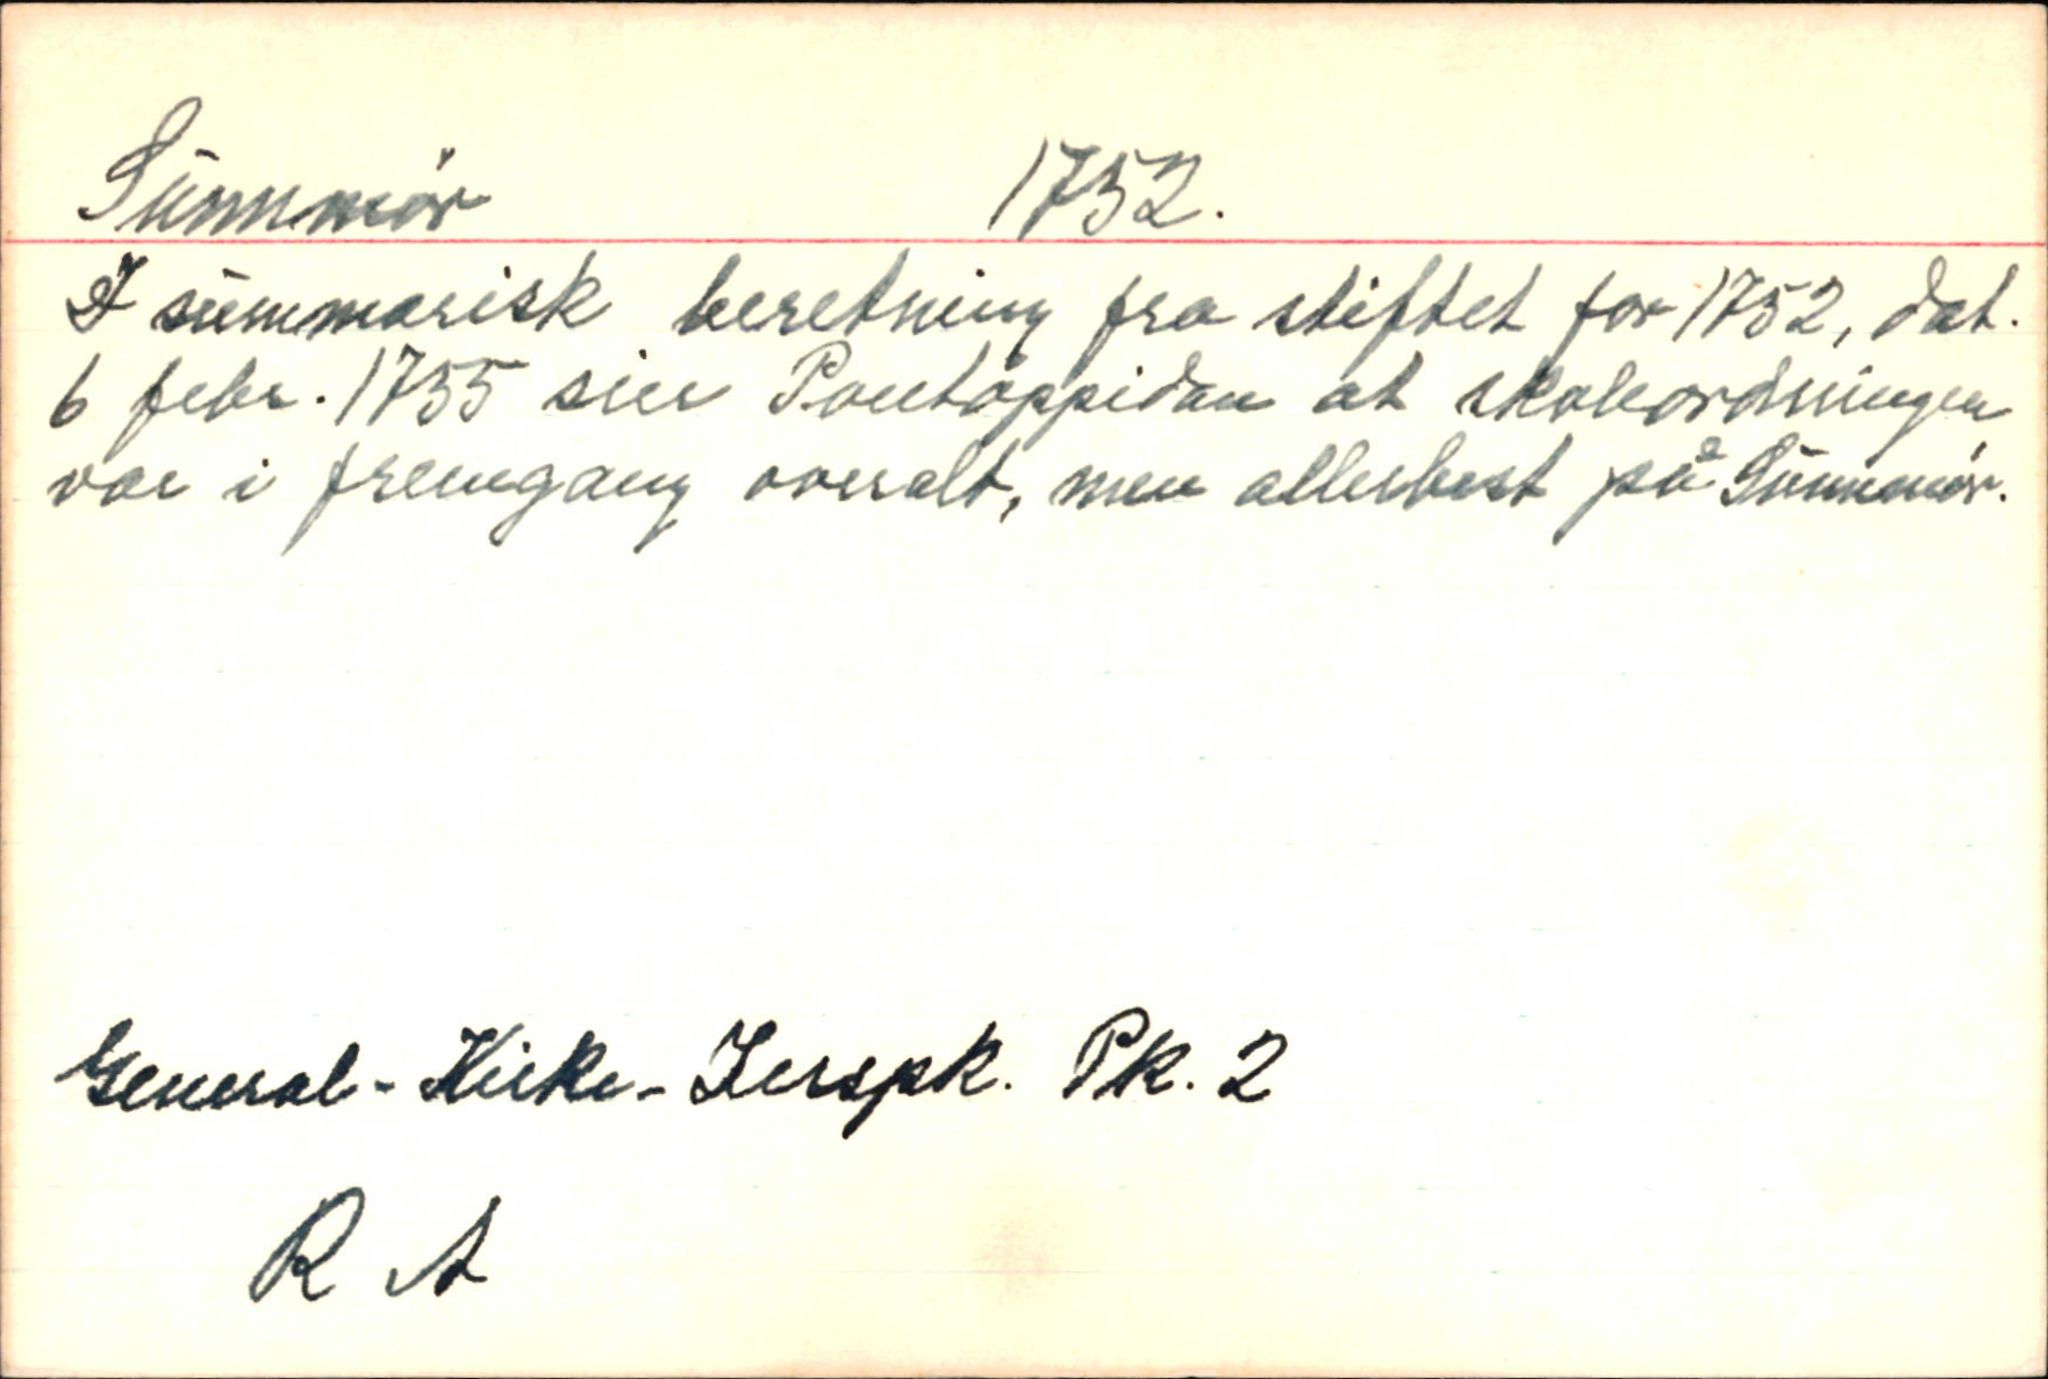 Sunnmør 1752.
I summarisk beretning fra stiftet for 1752, dat.
6 febr. 1755 sier Pontoppidan at skoleordningen
var i fremgang overalt, men allerbest på Sunnmør.
General-Kirke-Inspk. Pk. 2
R A